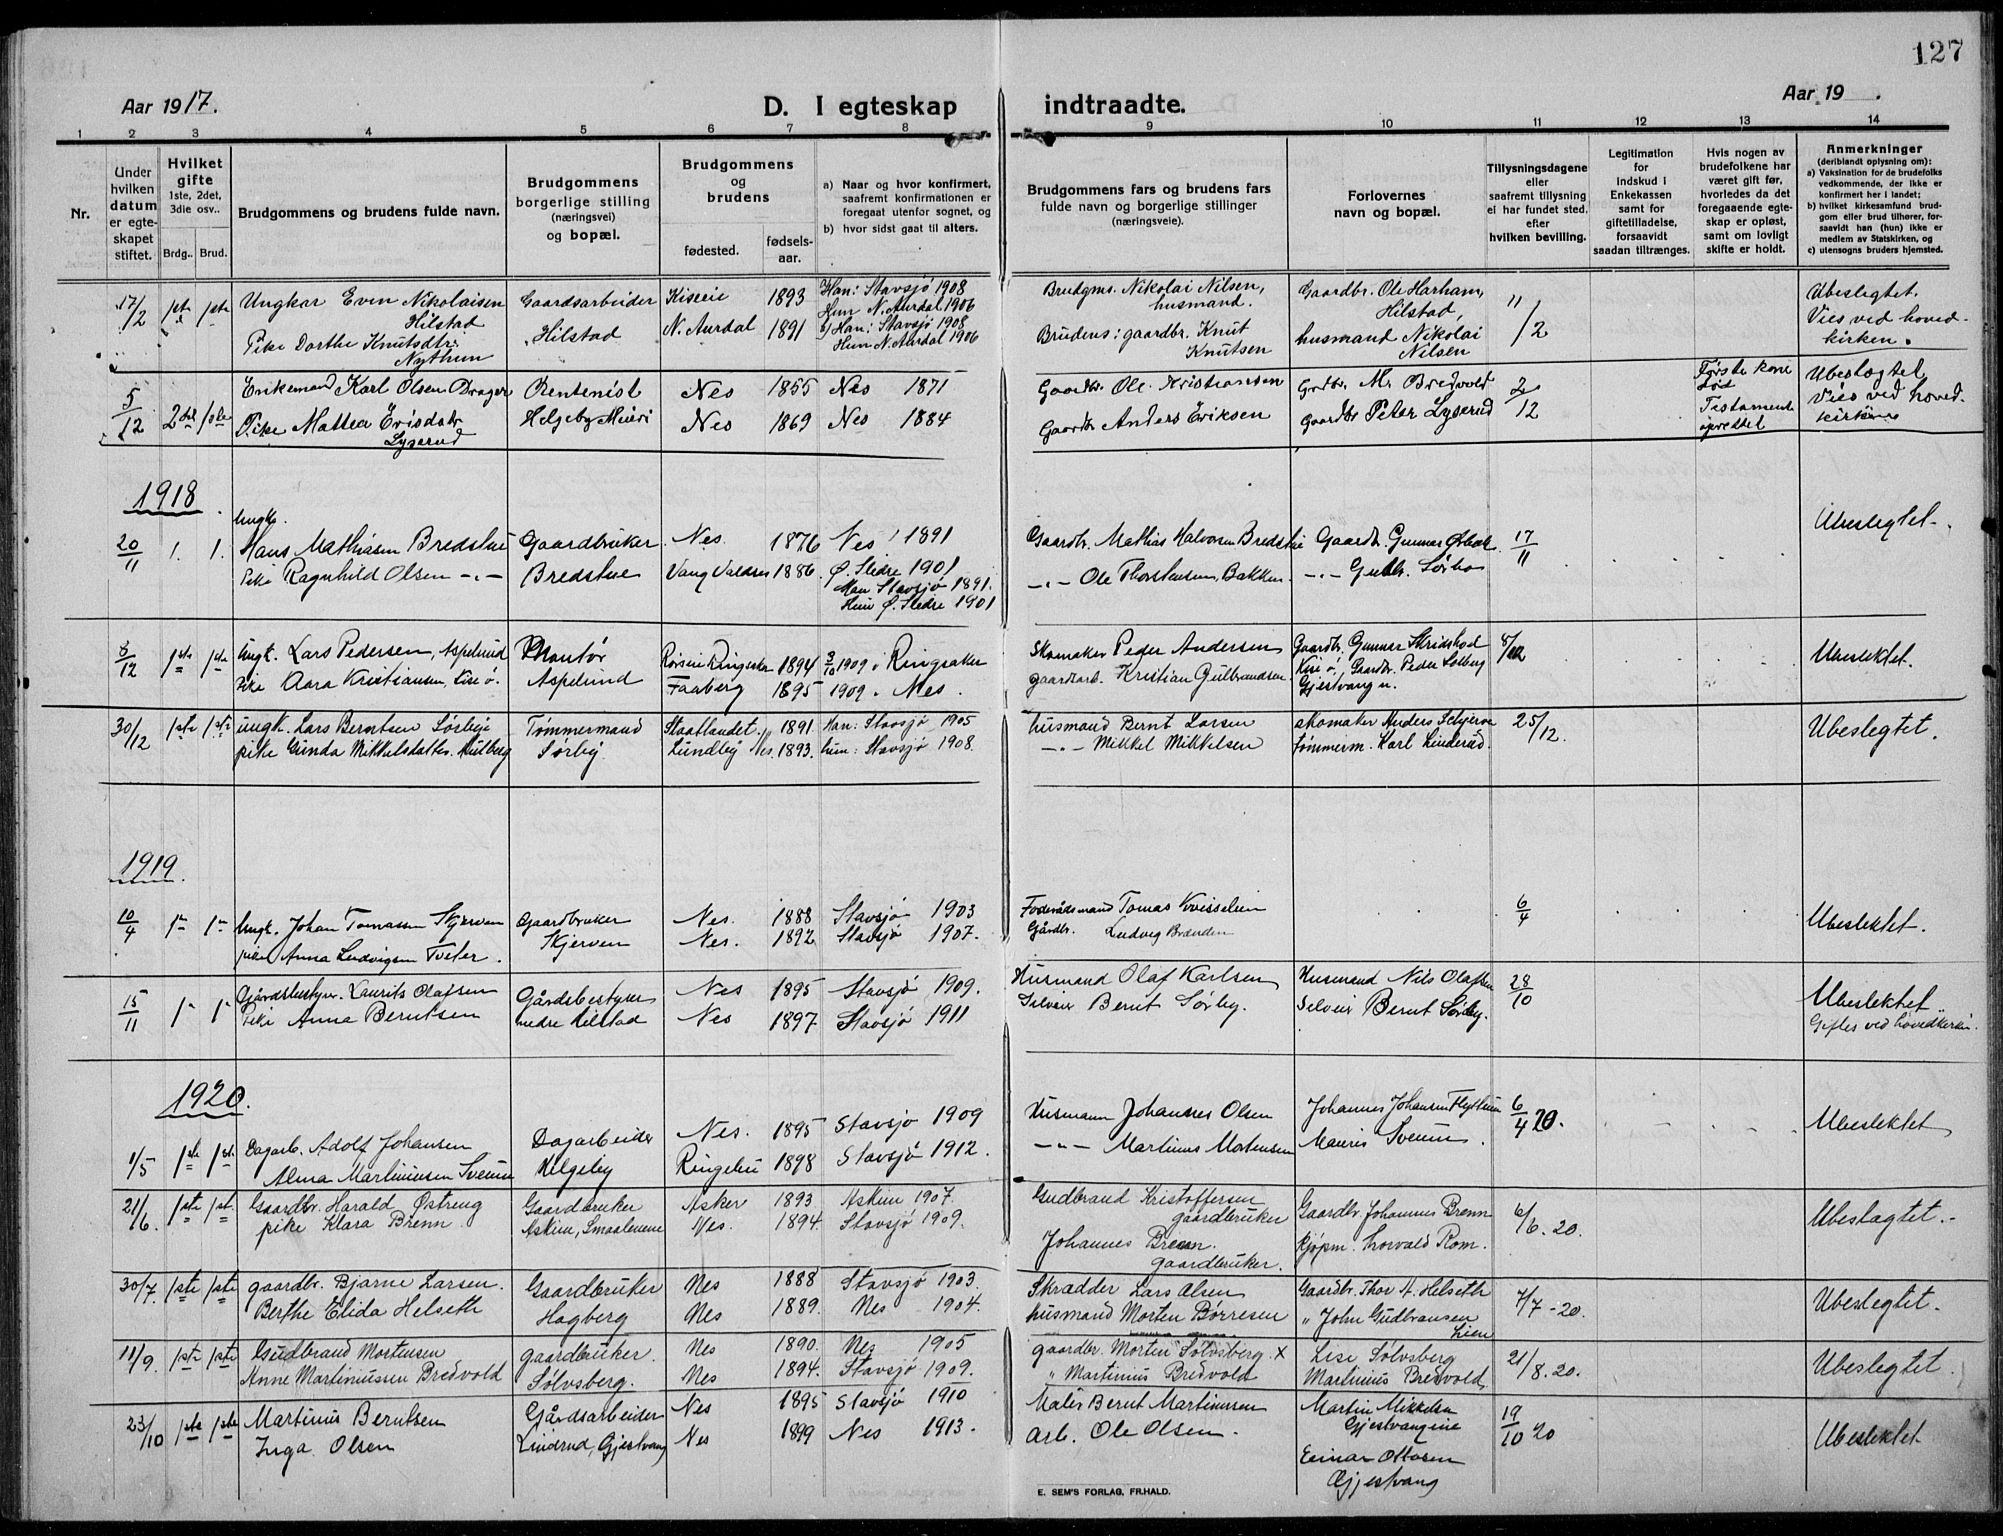 127
Aar 1917.
D. I egteskap indtraadte.
Aar 19 .
1 2 3 4 5 6 7 8 9 10 11 12 13 14
Nr.
Under hvilken datum er egteskapet stiftet.
Hvilket gifte 1ste, 2det, 3die osv..
Brdg.. Brud.
Brudgommens og brudens fulde navn.
Brudgommens borgerlige stilling (næringsvei) og bopæl.
Brudgommens og brudens
fødested. fødselsaar.
a) Naar og hvor konfirmert, saafremt konfirmationen er foregaat utenfor sognet, og
b) hvor sidst gaat til alters.
Brudgommens fars og brudens fars fulde navn og borgerlige stillinger (næringsveie).
Forlovernes navn og bopæl.
Tillysningsdagene eller saafremt tillysning ei har fundet sted. efter hvilken bevilling.
Legitimation for indskud i Enkekassen samt for giftetilladelse, forsaavidt saadan tiltrænges.
Hvis nogen av brudefolkene har været gift før, hvorledes da det foregaaende egteskap er opløst, samt om lovligt skifte er holdt.
Anmerkninger (deriblandt oplysning om):
a) Vaksination for de brudefolks vedkommende, der ikke er konfirmert her i landet;
b) hvilket kirkesamfund brudgom eller brud tilhører, forsaavidt han (hun) ikke er medlem av Statskirken, og
c) utensogns bruders hjemsted.
17/2 1ste 1ste Ungkar Even Nikolaisen Hilstad Gaardsarbeider 1893 Han: Stavsjø 1908 Brudgms. Nikolai Nilsen, husmand. Gaardbr. Ole Harham, Hilstad, 11/2 Ubeslegtet.
Pike Dorthe Knutsdtr. Nythun Hilstad N. Aurdal 1891 Hun N. Aurdal 1906 Brudens: gaardbr. Knut Knutsen husmand Nikolai Nilsen Vies ved hovedkirken.
b) Han: Stavsjø 1908
Hun N. Aurdal 1906
5/12 2det 1ste Enkemand Karl Olsen Drager Rentenist Nes 1855 Nes 1871 Gaardbr. Ole Kristiansen Grdbr. M. Bredvold 2/12 Første kone død Ubeslegtet
Pike Mattea Lygerud Helgeby Nes 1869 Nes 1884 Gaardbr Anders Eriksen Gaardbr Peter Lygerud Testament oprettet Vies ved hovedkirken
1918
Ungk.
20/11 1. 1. Hans Mathiasen Bredstue Gaardbruker Nes. 1876 Nes 1891 Gaardbr. Mathias Halvorsen Bredstue Gaardbr. Gunnar 17/11 Ubeslegtet.
Pike Ragnhild Olsen -"- Bredstue Vang Valdres 1886. Ø. Slidre 1901 -"- Ole Thorstensen, Bakken. -"-
Man Stavsjø 1891.
Hun Ø. Slidre 1901
8/12 1ste 1ste Ungk. Lars Pedersen, Aspelund Kontor 1894 1909 Ringsaker Skomaker Peder Andersen Gaardbr. Gunnar 8/12 Ubeslektet.
Pike Aara Kristiansen, Kise ø. Aspelund Faaberg 1895 1909. Nes. gaardarb. Kristian Gulbrandsen Kise ø, Gaardbr. Peder Solberg Gjestvang n.
30/12 1ste 1ste ungk. Lars Berntsen Sørbye Tømmermand 1891. Han: Stavsjø 1905 husmand Bernt Larsen skomaker Anders 25/12. Ubeslegtet.
pike Gunda Mikkelsdatter. Sørby. Lundby Nes. 1893. hun: Stavsjø 1908. -"- Mikkel Mikkelsen tømmerm. Karl Linderud.
1919.
10/4 1ste 1ste Ungk. Johan Tomassen Skjerven Gaardbruker Nes. 1888 Stavsjø 1903 Foderådsmand Tomas 6/4 Ubeslektet.
pike Anna Ludvigsen Tveter. Skjerven Nes. 1892 Stavsjø 1907. Gårdbr. Ludvig
15/11 1ste 1ste Gårdsbestyr. Laurits Olafsen Gårdsbestyrer Nes 1895 Stavsjø 1909. Husmand Olaf Karlsen Husmand Nils Olafsen 28/10 Ubeslektet
Pike Anna Berntsen nedre Hilstad Nes 1897. Stavsjø 1911 Selveier Bernt Sørby. Selveier Bernt Sørby. Giftes ved hovedkirken.
1920.
1/5 1ste 1ste Dagarb. Adolf Johansen Dagarbeider Nes. 1895 Stavsjø 1909 Husmann Johannes Olsen Johannes Johansen 6/4 20. Ubeslektet
Alma Martiniusen Sveum Helgeby Ringebu 1898 Stavsjø 1912. -"- Martinus Mortensen Sveum.
21/6. 1ste 1ste Gaardbr. Harald Østreng Gaardbruker Asker 1893 Askim 1907. Gudbrand Kristoffersen gaardbruker Gaardbr. Johannes Brenn 6/6. 20. Ubeslegtet.
pike Klara Brenn. Askim, Smaalenene Nes. 1894. Stavsjø 1909. Johannes Brenn. gaardbruker. kjøpm. Torvald Rom.
30/7. 1ste 1ste gaardbr. Bjarne Larsen. Gaardbruker Nes 1888 Stavsjø 1903. Skradder Lars Olsen Gaardbr. Thor A. Helseth 7/7-20. Ubeslegtet.
Berthe Elida Helseth Hagberg Nes 1889. Nes 1904. husmand Morten Børresen " John Gudbransen Lien
11/9. 1ste 1ste Gudbrand Mortensen gaardbruker. Nes 1890. Nes 1905 gaardbr. Morten Sølvsberg. x Lise Sølvsberg 21/8. 20. Ubeslegtet.
Anne Martiniussen Bredvold Sølvsberg. Nes 1894. Stavsjø 1909. " Martinius Bredvold Martinius Bredvold,
23/10 1ste 1ste Martinus Berntsen Gårdsarbeider Nes 1895 Stavsjø 1910 Maler Bernt Martinusen Martin Mikkelsen 19/10 20 Ubeslektet
Inga Olsen Lindrud, Gjestvang Nes 1899 Nes 1913. Arb. Ole Olsen.
Einar Ottosen Gjestvang
E. SEM'S FORLAG, FR.HALD.